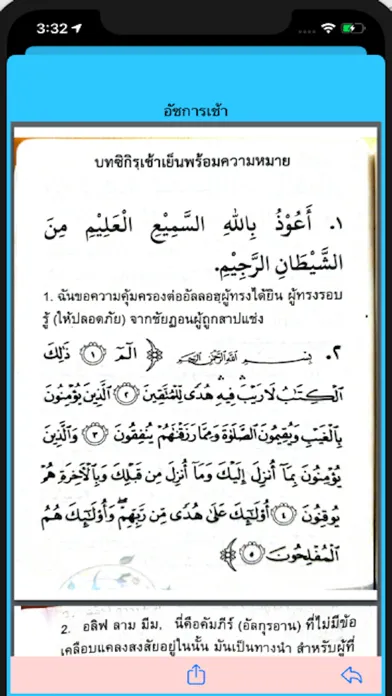 3:32
อัซการเช้า
บทซิกิรฺเช้าเย็นพร้อมความหมาย
١. أَعُوْذُ بِاللهِ السَّمِيْعِ الْعَلِيْمِ مِنَ
الشَّيْطَانِ الرَّجِيْمِ.
1. ฉันขอความคุ้มครองต่ออัลลอฮฺผู้ทรงได้ยิน ผู้ทรงรอบ
รู้ (ให้ปลอดภัย) จากชัยฏอนผู้ถูกสาปแช่ง
٢. بِسْمِ اللَّهِ الرَّحْمَٰنِ الرَّحِيمِ ﴿ الٓمٓ ۝١ ذَٰلِكَ
الْكِتَٰبُ لَا رَيْبَ ۛ فِيهِ ۛ هُدًى لِّلْمُتَّقِينَ ۝٢ الَّذِينَ يُؤْمِنُونَ
بِالْغَيْبِ وَيُقِيمُونَ الصَّلَوٰةَ وَمِمَّا رَزَقْنَٰهُمْ يُنفِقُونَ ۝٣ وَالَّذِينَ
يُؤْمِنُونَ بِمَآ أُنزِلَ إِلَيْكَ وَمَآ أُنزِلَ مِن قَبْلِكَ وَبِالْءَاخِرَةِ هُمْ
يُوقِنُونَ ۝٤ أُو۟لَٰٓئِكَ عَلَىٰ هُدًى مِّن رَّبِّهِمْ ۖ وَأُو۟لَٰٓئِكَ هُمُ
الْمُفْلِحُونَ ۝٥ ﴾
2. อลิฟ ลาม มีม, นี่คือคัมภีร์ (อัลกุรอาน) ที่ไม่มีข้อ
เคลือบแคลงสงสัยอยู่ในนั้น มันเป็นทางนำ สำหรับผู้ที่